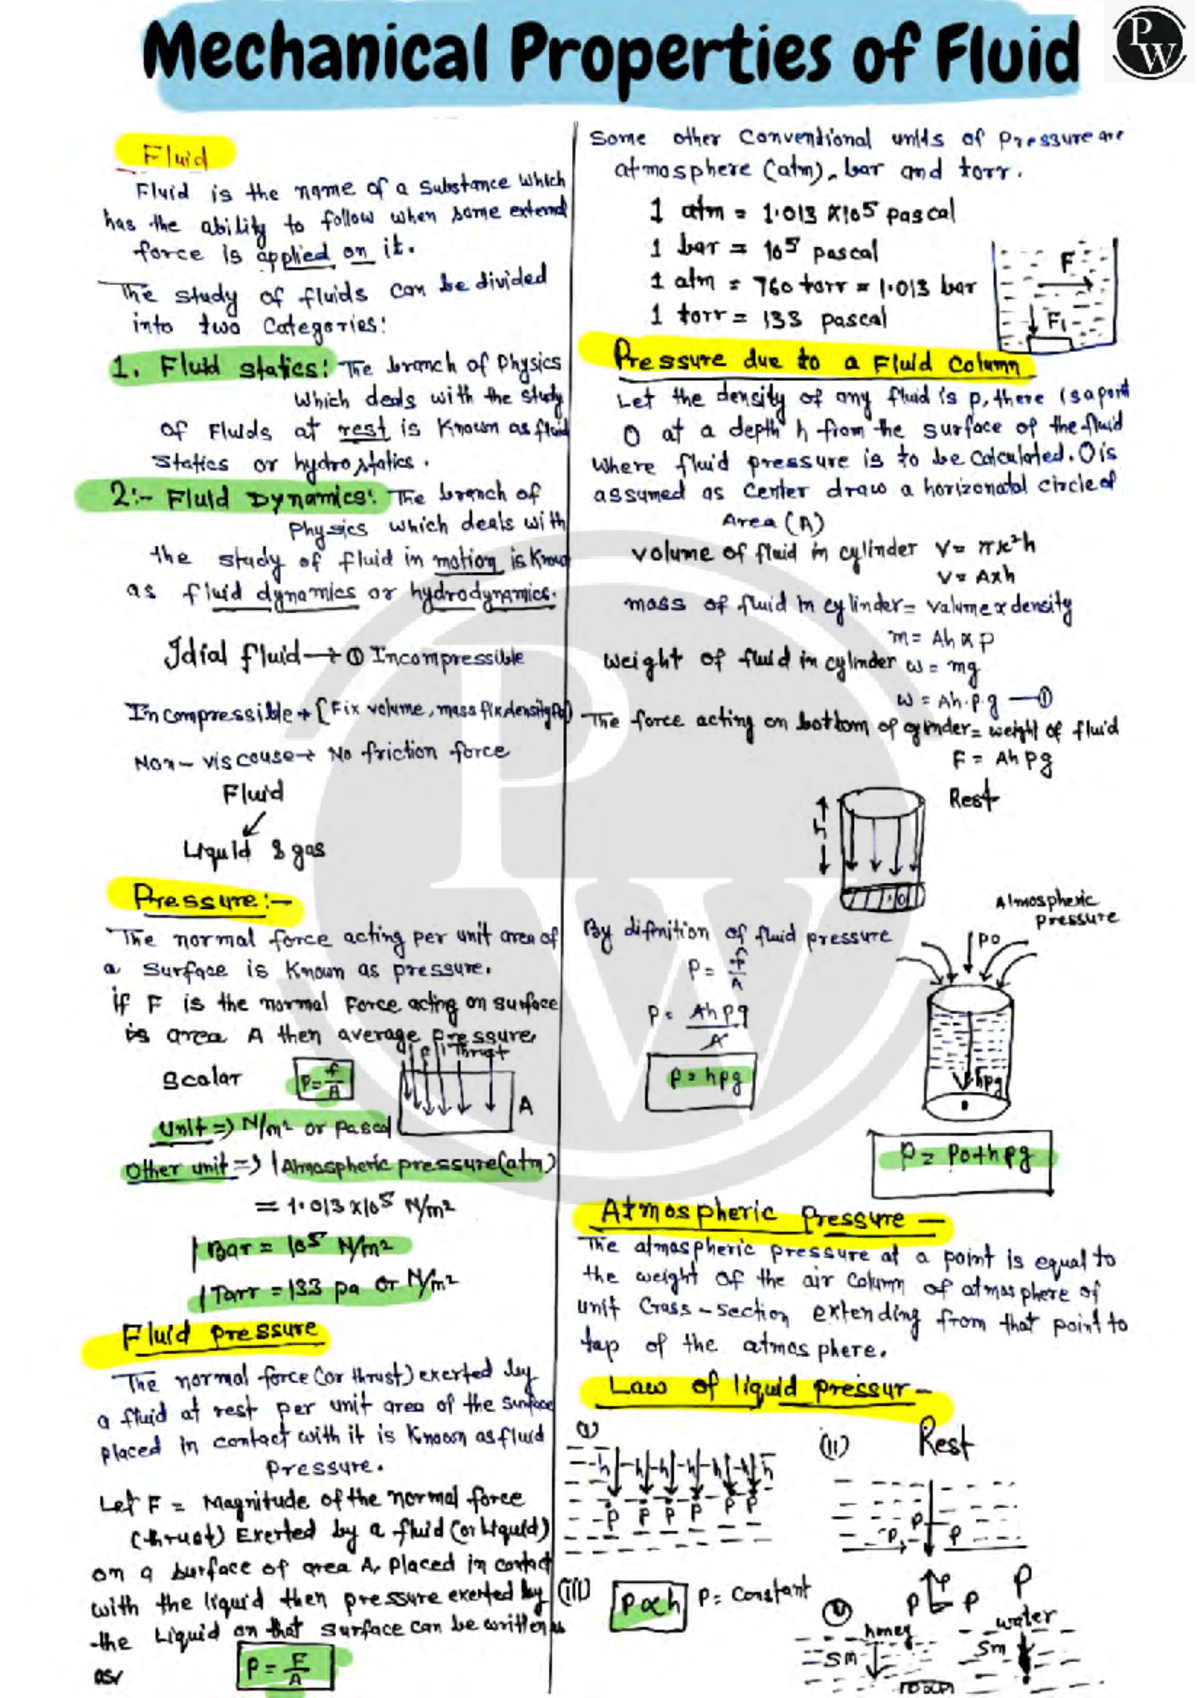 Mechanical Properties of Fluid
PW
Fluid
Fluid is the name of a substance which
has the ability to follow when some extend
force is applied on it.
The study of fluids can be divided
into two Categories:
1. Fluid statics: The branch of Physics
which deals with the study
of Fluids at rest is known as fluid
statics or hydrostatics.
2:- Fluid Dynamics: The branch of
Physics which deals with
the study of fluid in motion is know
as fluid dynamics or hydrodynamics.
Idial fluid → ① Incompressible
Incompressible → [Fix volume, mass fix, density
Non-viscouse → No friction force
Fluid
Liquid & gas
Pressure:-
The normal force acting per unit area of
a surface is known as pressure.
if F is the normal Force acting on surface
is area A then average pressure
Scalar P = f/A
P Thrust
A
Unit ⇒ N/m² or pascal
Other unit ⇒ 1 Atmospheric pressure (atm)
= 1.013 x 10⁵ N/m²
1 Bar = 10⁵ N/m²
1 Tarr = 133 pa or N/m²
Fluid pressure
The normal force (or thrust) exerted by
a fluid at rest per unit area of the surface
placed in contact with it is known as fluid
pressure.
Let F = Magnitude of the normal force
(thrust) Exerted by a fluid (or liquid)
on a surface of area A, placed in contact
with the liquid then pressure exerted by
the Liquid on that surface can be written as
as/
P = F/A
Some other Conventional units of Pressure are
atmosphere (atm), bar and torr.
1 atm = 1.013 x 10⁵ pascal
1 bar = 10⁵ pascal
1 atm = 760 torr = 1.013 bar
1 torr = 133 pascal
F
F₁
Pressure due to a Fluid Column
Let the density of any fluid is p, there is a point
O at a depth h from the surface of the fluid
where fluid pressure is to be calculated. O is
assumed as center draw a horizonatal circle of
Area (A)
volume of fluid in cylinder V = πr²h
V = Axh
mass of fluid in cylinder = valume x density
m = Ah x p
weight of fluid in cylinder w = mg
w = Ah.p.g —①
The force acting on bottom of cylinder = weight of fluid
F = Ahpg
h
Rest
O
By difinition of fluid pressure
P = f/A
P = Ahpg/A
P = hpg
Atmospheric
pressure
Po
hpg
P = Po + hpg
Atmospheric Pressure —
The atmospheric pressure at a point is equal to
the weight of the air column of atmosphere of
unit Cross-section extending from that point to
tap of the atmosphere.
Law of liquid pressur -
(i)
h h h h h h
P P P P P P
(ii) Rest
P
P P
(iii) P ∝ h P = Constant
P
P P P
honey
5m
water
5m